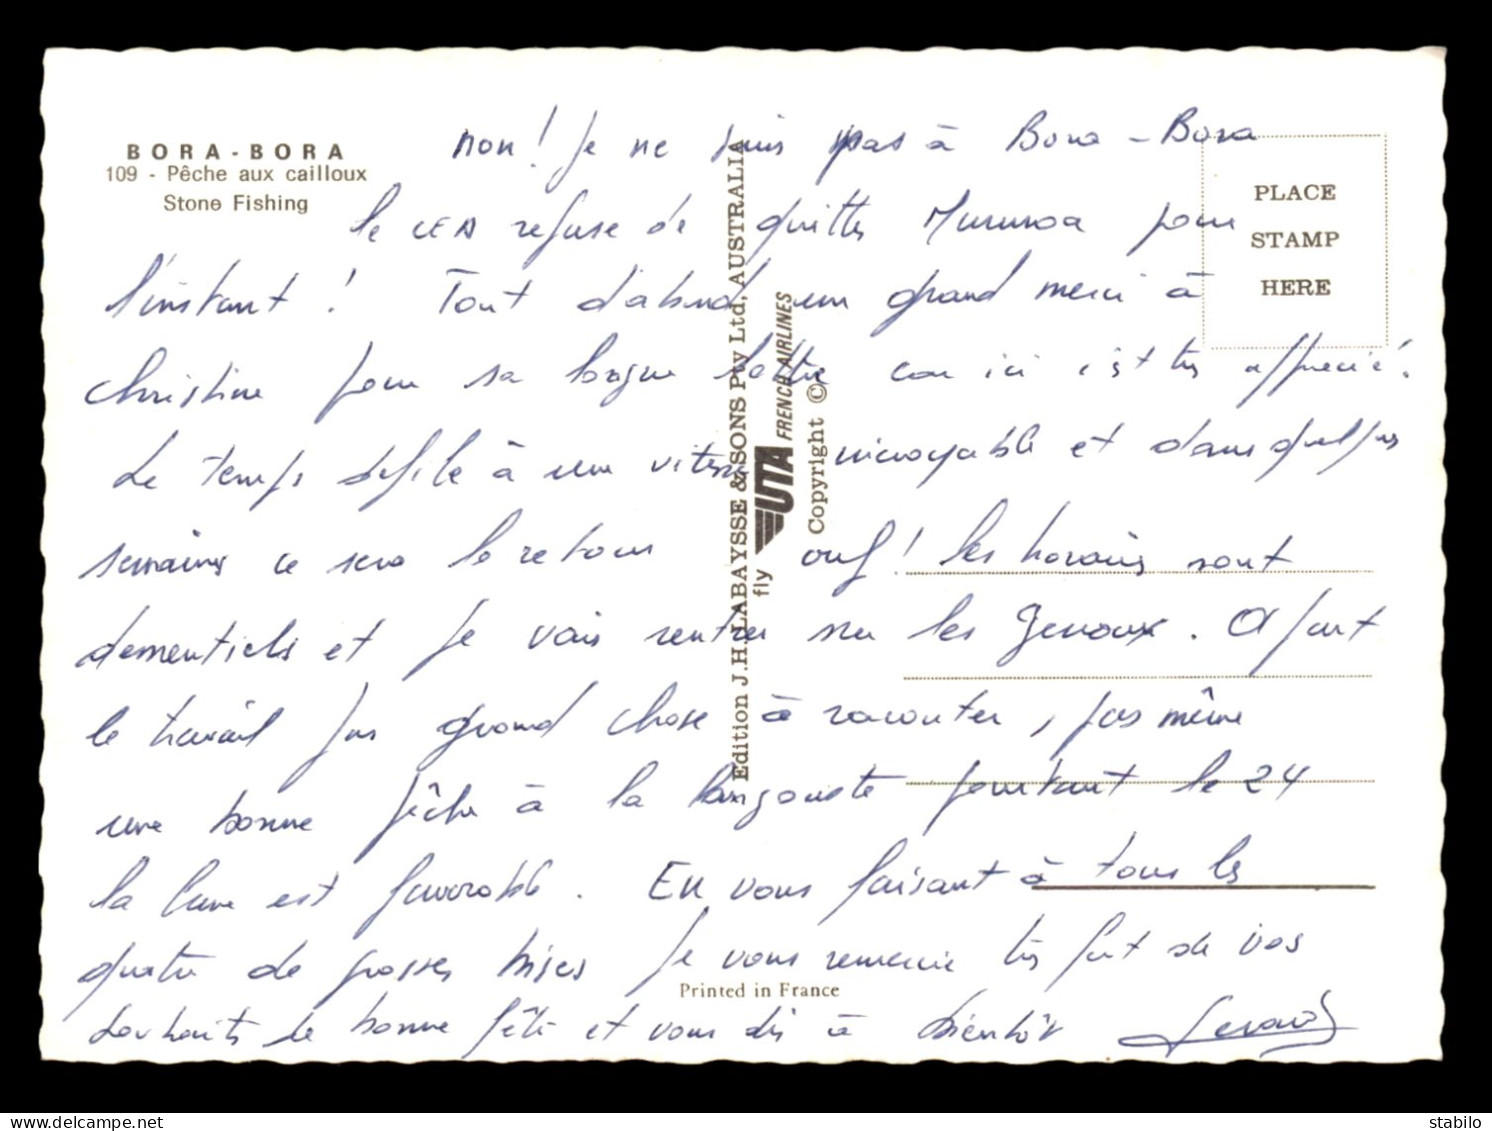 BORA-BORA
109 - Pêche aux cailloux
Stone Fishing
PLACE
STAMP
HERE
non! Je ne suis pas à Bora-Bora
le CEA refuse de quitter Mururoa pour
l'instant! Tout d'abord un grand merci à
Christine pour sa longue lettre car ici c'est très apprécié!
Le temps défile à une vitesse incroyable et dans quelques
semaines ce sera le retour ouf! les horaires sont
dementiels et je vais rentrer sur les genoux. A part
le travail pas grand chose à raconter, pas même
une bonne pêche à la langouste pourtant le 24
la lune est favorable. En vous faisant à tous les
quatre de grosses bises je vous remercie très fort de vos
souhaits de bonne fête et vous dis à bientôt Gerard
Edition J.H. LABAYSSE & SONS Pty Ltd, AUSTRALIA
fly UTA FRENCH AIRLINES
Copyright ©
Printed in France
stabilo